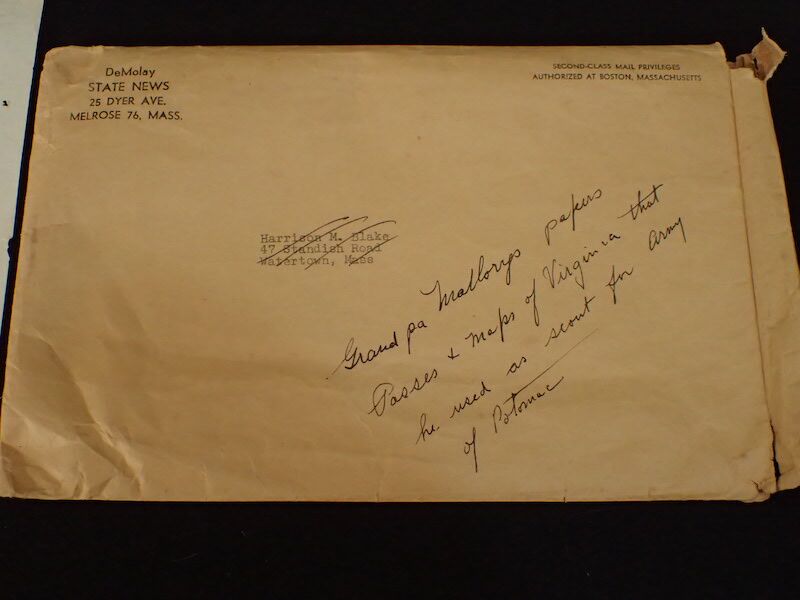 DeMolay
STATE NEWS
25 DYER AVE.
MELROSE 76, MASS.
SECOND-CLASS MAIL PRIVILEGES
AUTHORIZED AT BOSTON, MASSACHUSETTS
Harrison M. Blake
47 Standish Road
Watertown, Mass
Grandpa Mallorys papers
Passes + Maps of Virginia that
he used as scout for Army
of Potomac